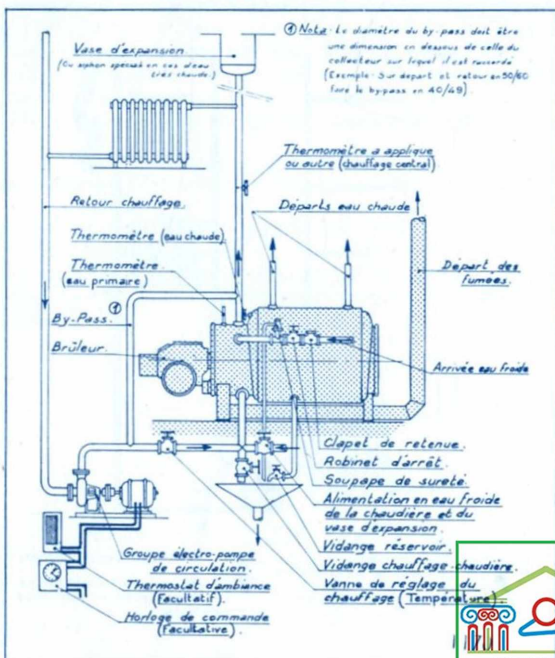 ① Nota - Le diamètre du by-pass doit être
une dimension en dessous de celle du
collecteur sur lequel il est raccordé
(Exemple - Sur départ et retour en 50/60
faire le by-pass en 40/49).
Vase d'expansion
(Ou siphon spécial en cas d'eau
très chaude.)
Thermomètre a applique
ou autre (chauffage central)
Retour chauffage.
Départs eau chaude
Thermomètre (eau chaude)
Thermomètre.
(eau primaire)
Départ des
fumées.
①
By-Pass.
Brûleur
Arrivée eau froide
Clapet de retenue.
Robinet d'arrêt.
Soupape de sureté.
Alimentation en eau froide
de la chaudière et du
vase d'expansion.
Vidange réservoir.
Vidange chauffage chaudière.
Vanne de réglage du
chauffage (Température)
Groupe électro-pompe
de circulation.
Thermostat d'ambiance
(Facultatif).
Horloge de commande
(Facultative).